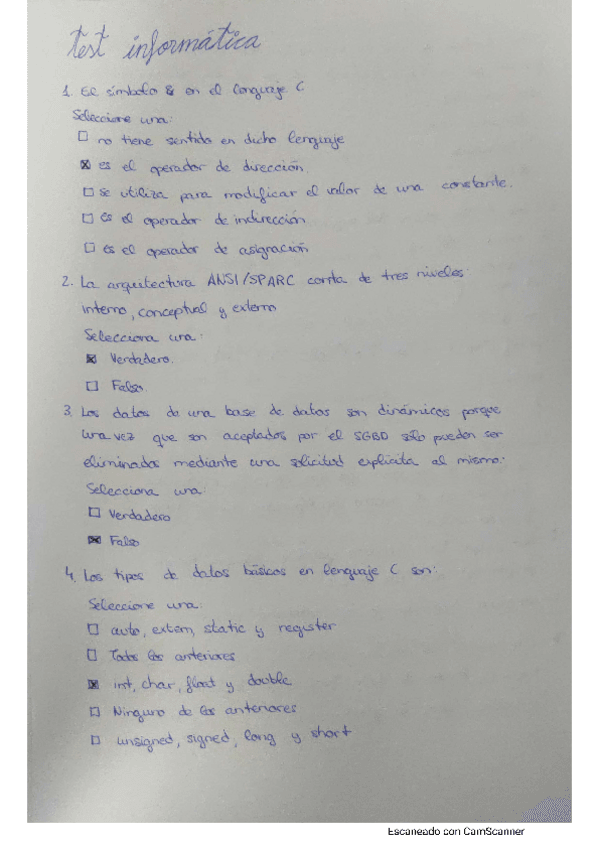 Test informática
1. El símbolo & en el lenguaje C
Seleccione una:
□ no tiene sentido en dicho lenguaje
☒ es el operador de dirección.
□ se utiliza para modificar el valor de una constante.
□ es el operador de indirección
□ es el operador de asignación
2. La arquitectura ANSI/SPARC consta de tres niveles:
interno, conceptual y externo
Selecciona una:
☒ Verdadero.
□ Falso.
3. Los datos de una base de datos son dinámicos porque
una vez que son aceptados por el SGBD sólo pueden ser
eliminados mediante una solicitud explícita al mismo:
Selecciona una:
□ Verdadero
☒ Falso
4. Los tipos de datos básicos en lenguaje C son:
Seleccione una:
□ auto, extern, static y register
□ Todos los anteriores
☒ int, char, float y double
□ Ninguno de los anteriores
□ unsigned, signed, long y short
Escaneado con CamScanner